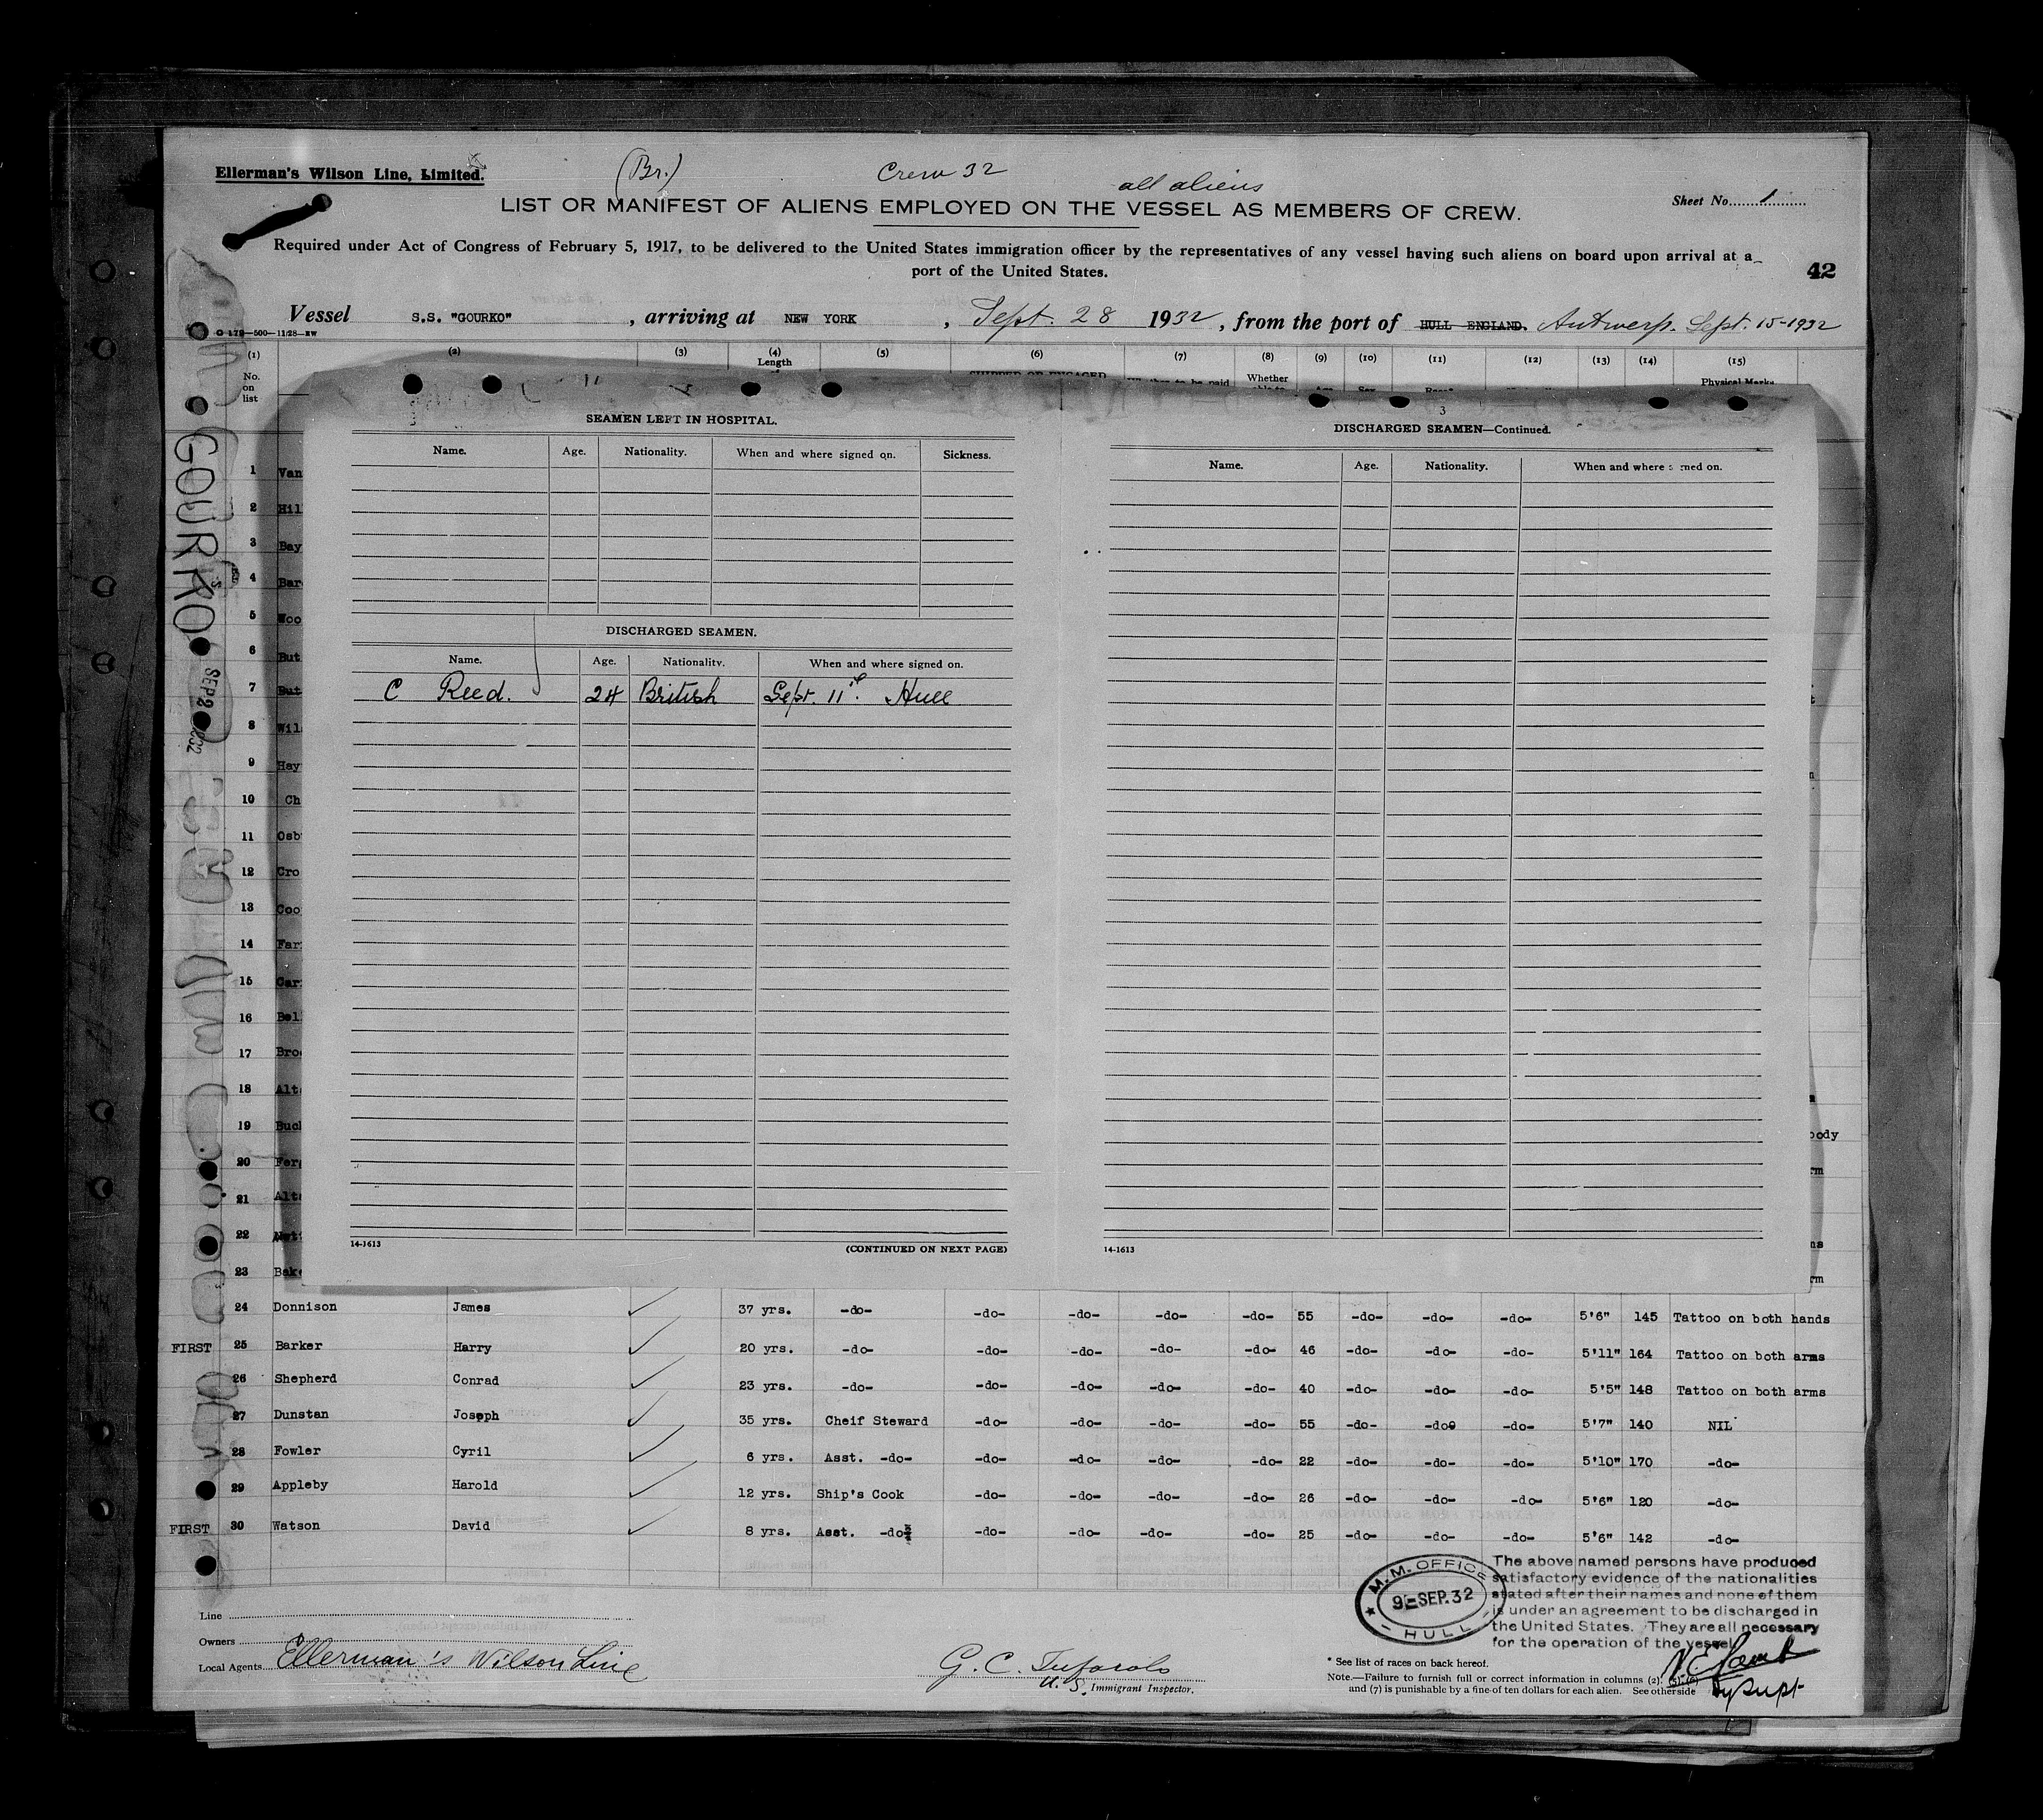 Ellerman's Wilson Line, Limited.
(Br.)
Crew 32
all aliens
Sheet No. 1
LIST OR MANIFEST OF ALIENS EMPLOYED ON THE VESSEL AS MEMBERS OF CREW.
Required under Act of Congress of February 5, 1917, to be delivered to the United States immigration officer by the representatives of any vessel having such aliens on board upon arrival at a
port of the United States.
42
Vessel S.S. "GOURKO", arriving at NEW YORK, Sept. 28 1932, from the port of HULL ENGLAND. Antwerp. Sept. 15-1932
(1) (2) (3) (4) (5) (6) (7) (8) (9) (10) (11) (12) (13) (14) (15)
No. on list
Length
Whether
Physical Marks
GOURKO
3
SEAMEN LEFT IN HOSPITAL.
Name. Age. Nationality. When and where signed on. Sickness.
DISCHARGED SEAMEN.
Name. Age. Nationality. When and where signed on.
C Reed. 24 British Sept. 11th. Hull
14-1613
(CONTINUED ON NEXT PAGE)
DISCHARGED SEAMEN—Continued.
Name. Age. Nationality. When and where s ned on.
14-1613
1 Van
2 Hil
3 Bay
4 Bar
5 Woo
6 But
7 But
8 Wil
9 Hay
10 Ch
11 Osb
12 Cro
13 Coo
14 Far
15 Car
16 Bell
17 Bro
18 Alt
19 Buc
body
20 Fer
rm
21 Alt
22
ns
23 Bake
rm
24 Donnison James 37 yrs. -do- -do- -do- -do- -do- 55 -do- -do- -do- 5'6" 145 Tattoo on both hands
FIRST 25 Barker Harry 20 yrs. -do- -do- -do- -do- -do- 46 -do- -do- -do- 5'11" 164 Tattoo on both arms
26 Shepherd Conrad 23 yrs. -do- -do- -do- -do- -do- 40 -do- -do- -do- 5'5" 148 Tattoo on both arms
27 Dunstan Joseph 35 yrs. Cheif Steward -do- -do- -do- -do- 55 -do- -do- -do- 5'7" 140 NIL
28 Fowler Cyril 6 yrs. Asst. -do- -do- -do- -do- -do- 22 -do- -do- -do- 5'10" 170 -do-
29 Appleby Harold 12 yrs. Ship's Cook -do- -do- -do- -do- 26 -do- -do- -do- 5'6" 120 -do-
FIRST 30 Watson David 8 yrs. Asst. -do- -do- -do- -do- -do- 25 -do- -do- -do- 5'6" 142 -do-
M.M. OFFICE
9-SEP.32
HULL
The above named persons have produced
satisfactory evidence of the nationalities
stated after their names and none of them
is under an agreement to be discharged in
the United States. They are all necessary
for the operation of the vessel
Line
Owners
Local Agents Ellerman's Wilson Line
U.S. Immigrant Inspector.
Dy Supt
* See list of races on back hereof.
Note.—Failure to furnish full or correct information in columns (2), (5), (6)
and (7) is punishable by a fine of ten dollars for each alien. See other side